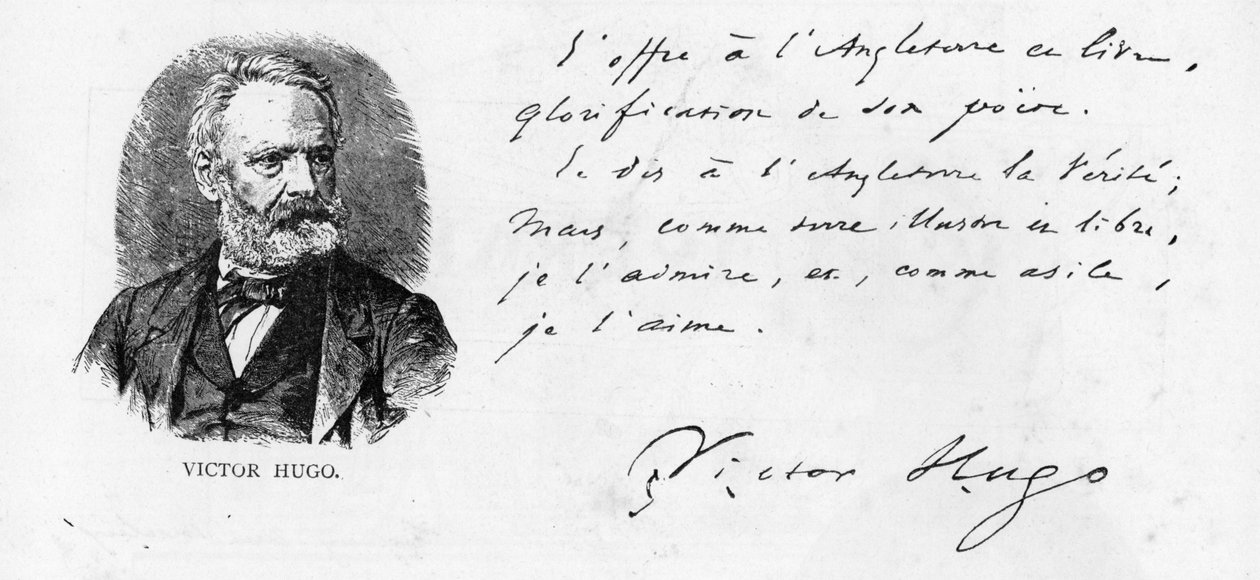 J'offre à l'Angleterre ce livre,
glorification de son poëte.
Je dis à l'Angleterre la vérité ;
mais, comme terre illustre et libre,
je l'admire, et, comme asile,
je l'aime.
Victor Hugo
VICTOR HUGO.